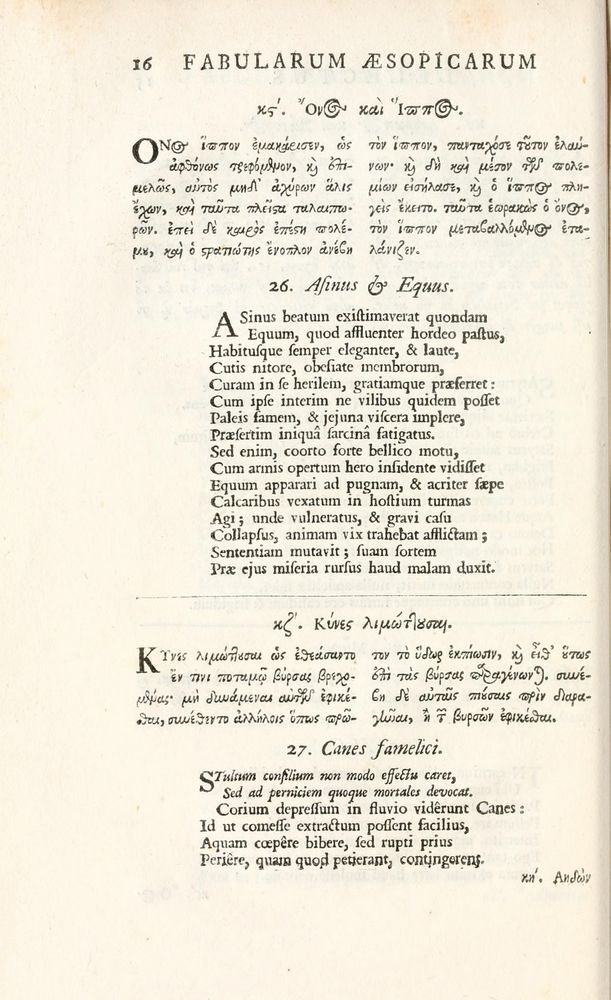 16 FABULARUM ÆSOPICARUM
κϛʹ. Ὄνος καὶ Ἵππος.
ΟΝος ἵππον ἐμακάρισεν, ὡς
ἀφθόνως τρεφόμενον, καὶ ἐπι-
μελῶς, αὐτὸς μηδ' ἀχύρων ἅλις
ἔχων, καὶ ταῦτα πλεῖστα ταλαιπω-
ρῶν. ἐπεὶ δὲ καιρὸς ἐπέστη πολέ-
μου, καὶ ὁ στρατιώτης ἔνοπλον ἀνέβη
τὸν ἵππον, πανταχόσε τοῦτον ἐλαύ-
νων· καὶ δὴ καὶ μέσον τῶν πολε-
μίων εἰσήλασε, καὶ ὁ ἵππος πλη-
γεὶς ἔκειτο. ταῦτα ἑωρακὼς ὁ ὄνος,
τὸν ἵππον μεταβαλλόμενος ἐτα-
λάνιζεν.
26. Asinus & Equus.
ASinus beatum existimaverat quondam
Equum, quod affluenter hordeo pastus,
Habitusque semper eleganter, & laute,
Cutis nitore, obesiate membrorum,
Curam in se herilem, gratiamque præferret:
Cum ipse interim ne vilibus quidem posset
Paleis famem, & jejuna viscera implere,
Præsertim iniquâ sarcinâ fatigatus.
Sed enim, coorto forte bellico motu,
Cum armis opertum hero insidente vidisset
Equum apparari ad pugnam, & acriter sæpe
Calcaribus vexatum in hostium turmas
Agi; unde vulneratus, & gravi casu
Collapsus, animam vix trahebat afflictam;
Sententiam mutavit; suam sortem
Præ ejus miseria rursus haud malam duxit.
κζʹ. Κύνες λιμώττουσαι.
ΚΎνες λιμώττουσαι ὡς ἐθεάσαντο
ἔν τινι ποταμῷ βύρσας βρεχο-
μένας· μὴ δυνάμεναι αὐτῶν ἐφικέ-
σθαι, συνέθεντο ἀλλήλοις ὅπως πρῶ-
τον τὸ ὕδωρ ἐκπίωσιν, καὶ εἶθ' οὕτως
ἐπὶ τὰς βύρσας παραγένωνται. συνέ-
βη δὲ αὐταῖς πιούσαις πρὶν διαρα-
γῶναι, ἢ τῶν βυρσῶν ἐφικέσθαι.
27. Canes famelici.
STultum consilium non modo effectu caret,
Sed ad perniciem quoque mortales devocat.
Corium depressum in fluvio vidêrunt Canes:
Id ut comesse extractum possent facilius,
Aquam cœpêre bibere, sed rupti prius
Periêre, quam quod petierant, contingerent.
κηʹ. Αηδὼν